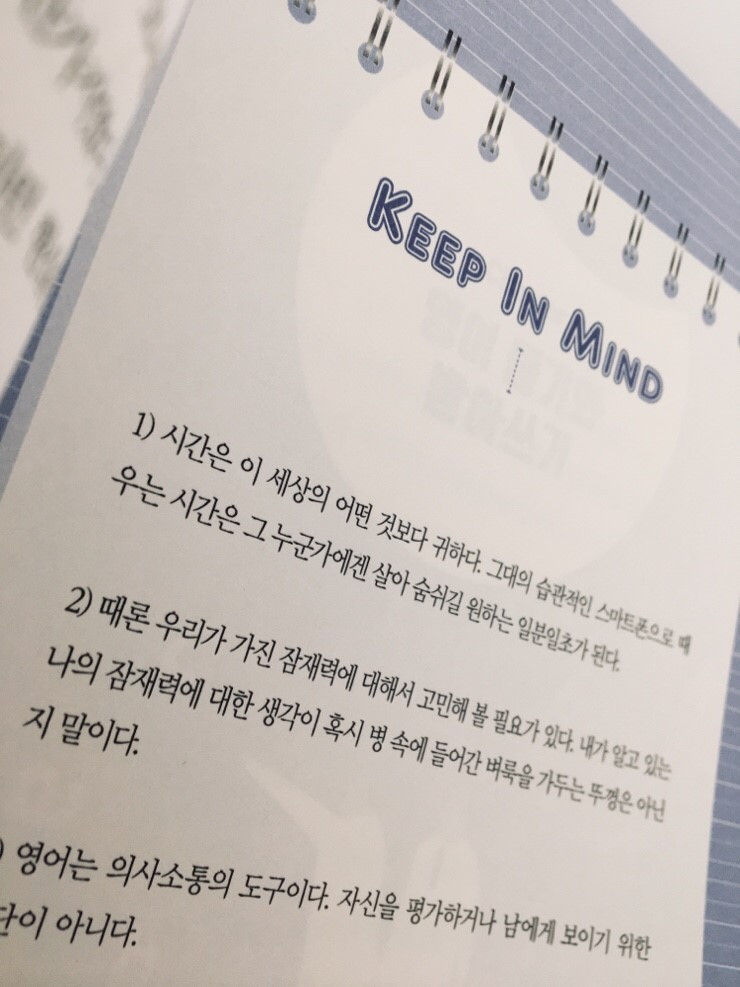 KEEP IN MIND
1) 시간은 이 세상의 어떤 것보다 귀하다. 그대의 습관적인 스마트폰으로 때
우는 시간은 그 누군가에겐 살아 숨쉬길 원하는 일분일초가 된다.
2) 때론 우리가 가진 잠재력에 대해서 고민해 볼 필요가 있다. 내가 알고 있는
나의 잠재력에 대한 생각이 혹시 병 속에 들어간 벼룩을 가두는 뚜껑은 아닌
지 말이다.
) 영어는 의사소통의 도구이다. 자신을 평가하거나 남에게 보이기 위한
단이 아니다.